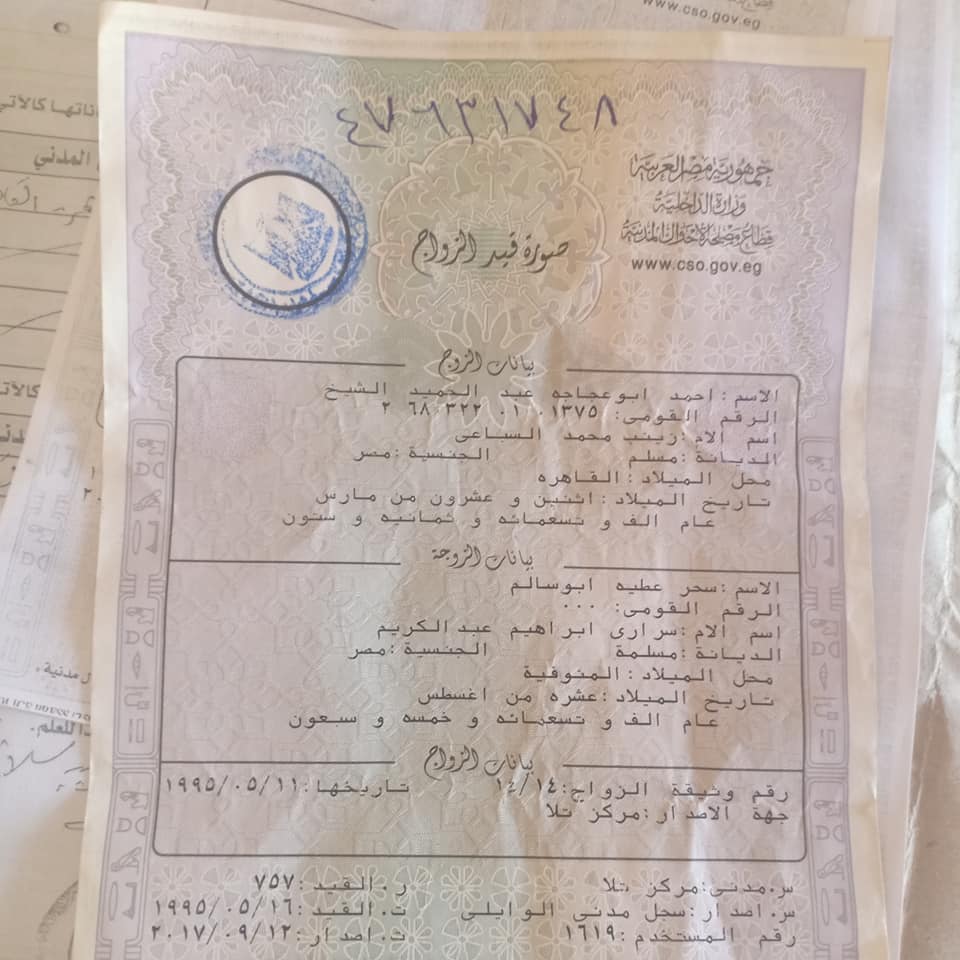 www.cso.gov.eg
٤٧٦٣١٧٤٨
جمهورية مصر العربية
وزارة الداخلية
قطاع مصلحة الأحوال المدنية
www.cso.gov.eg
صورة قيد الزواج
بيانات الزوج
الاسم: احمد ابوعجاجه عبد الحميد الشيخ
الرقم القومى: ٢ ٦٨٠٣٢٢ ٠١ ٠١٣٧٥
اسم الام: زينب محمد السباعى
الديانة: مسلم الجنسية: مصر
محل الميلاد: القاهره
تاريخ الميلاد: اثنين و عشرون من مارس
عام الف و تسعمائه و ثمانيه و ستون
بيانات الزوجة
الاسم: سحر عطيه ابوسالم
الرقم القومى: ٠٠٠
اسم الام: سرارى ابراهيم عبد الكريم
الديانة: مسلمة الجنسية: مصر
محل الميلاد: المنوفية
تاريخ الميلاد: عشره من اغسطس
عام الف و تسعمائه و خمسه و سبعون
بيانات الزواج
رقم وثيقة الزواج: ١٤/١٤ تاريخها: ١٩٩٥/٠٥/١١
جهة الاصدار: مركز تلا
س.مدنى: مركز تلا ر.القيد: ٧٥٧
س.اصدار: سجل مدنى الوايلى ت.القيد: ١٩٩٥/٠٥/١٦
رقم المستخدم: ١٦١٩ ت.اصدار: ٢٠١٧/٠٩/١٢
المدني
كالآتي
مدنية.
للعلم.